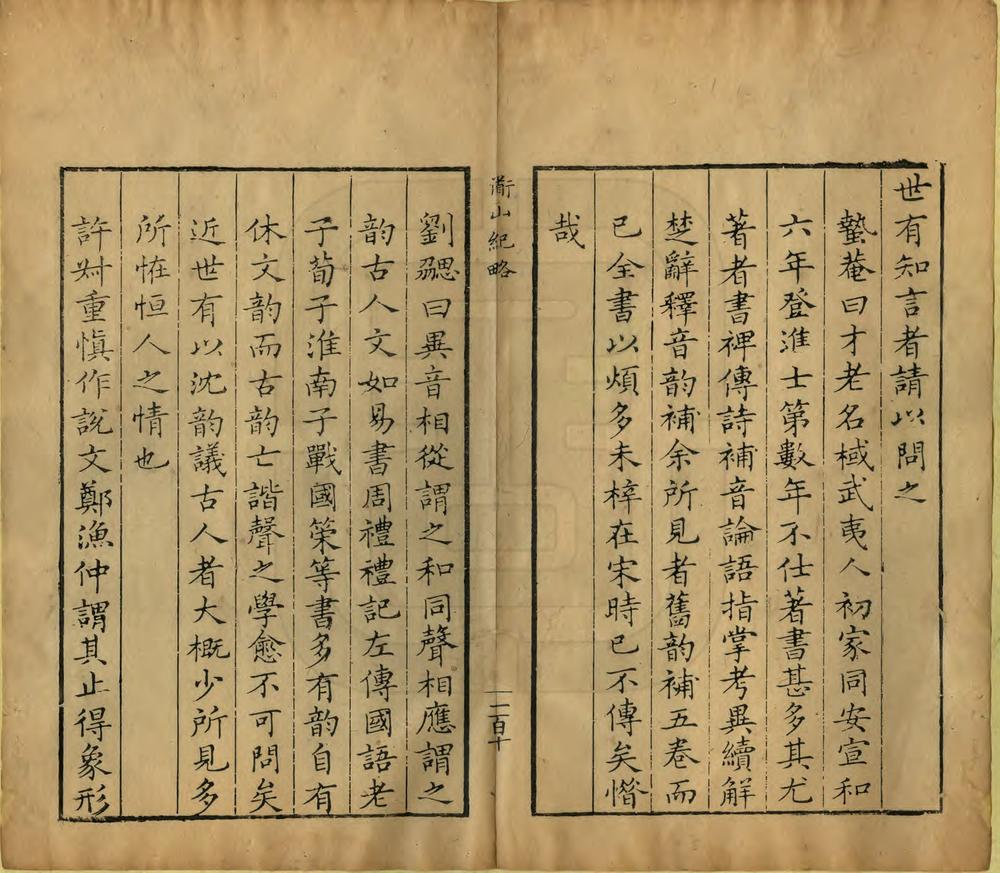 世有知言者請以問之
蟄菴曰才老名棫武夷人初家同安宣和
六年登進士第數年不仕著書甚多其尤
著者書裨傳詩補音論語指掌考異續解
楚辭釋音韵補余所見者舊韵補五卷而
已全書以煩多未梓在宋時已不傳矣惜
哉
蘅山紀略
二百十
劉勰曰異音相從謂之和同聲相應謂之
韵古人文如易書周禮禮記左傳國語老
子荀子淮南子戰國策等書多有韵自有
休文韵而古韵亡諧聲之學愈不可問矣
近世有以沈韵議古人者大概少所見多
所恠恒人之情也
許尗重慎作說文鄭漁仲謂其止得象形